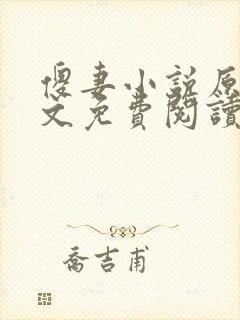 傻妻小說原
文免費閱讀
喬吉甫